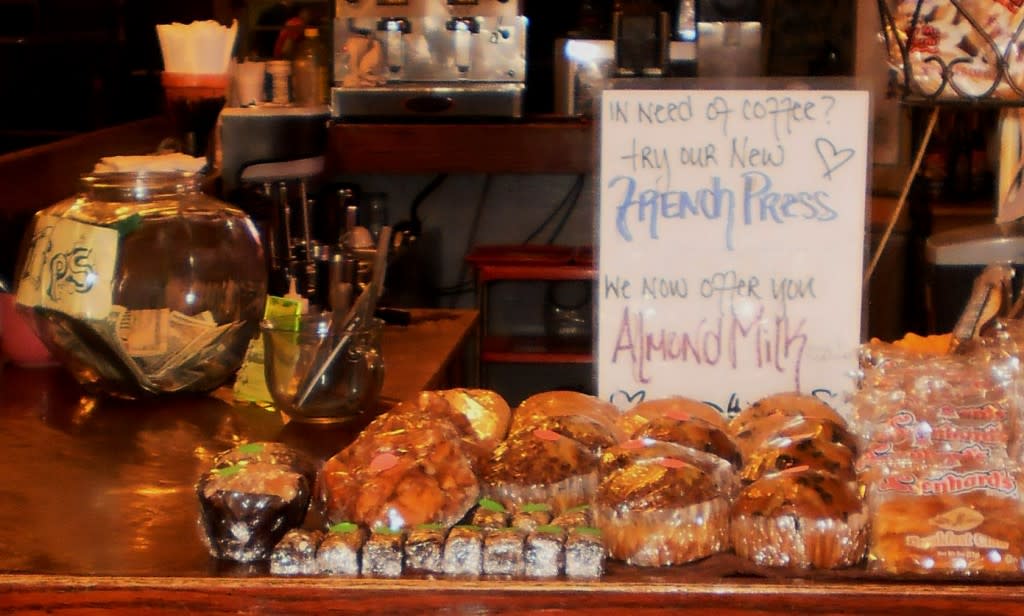 IN Need of coffee?
try our New
French Press
We Now offer you
Almond Milk
TiPS
Lenhard's